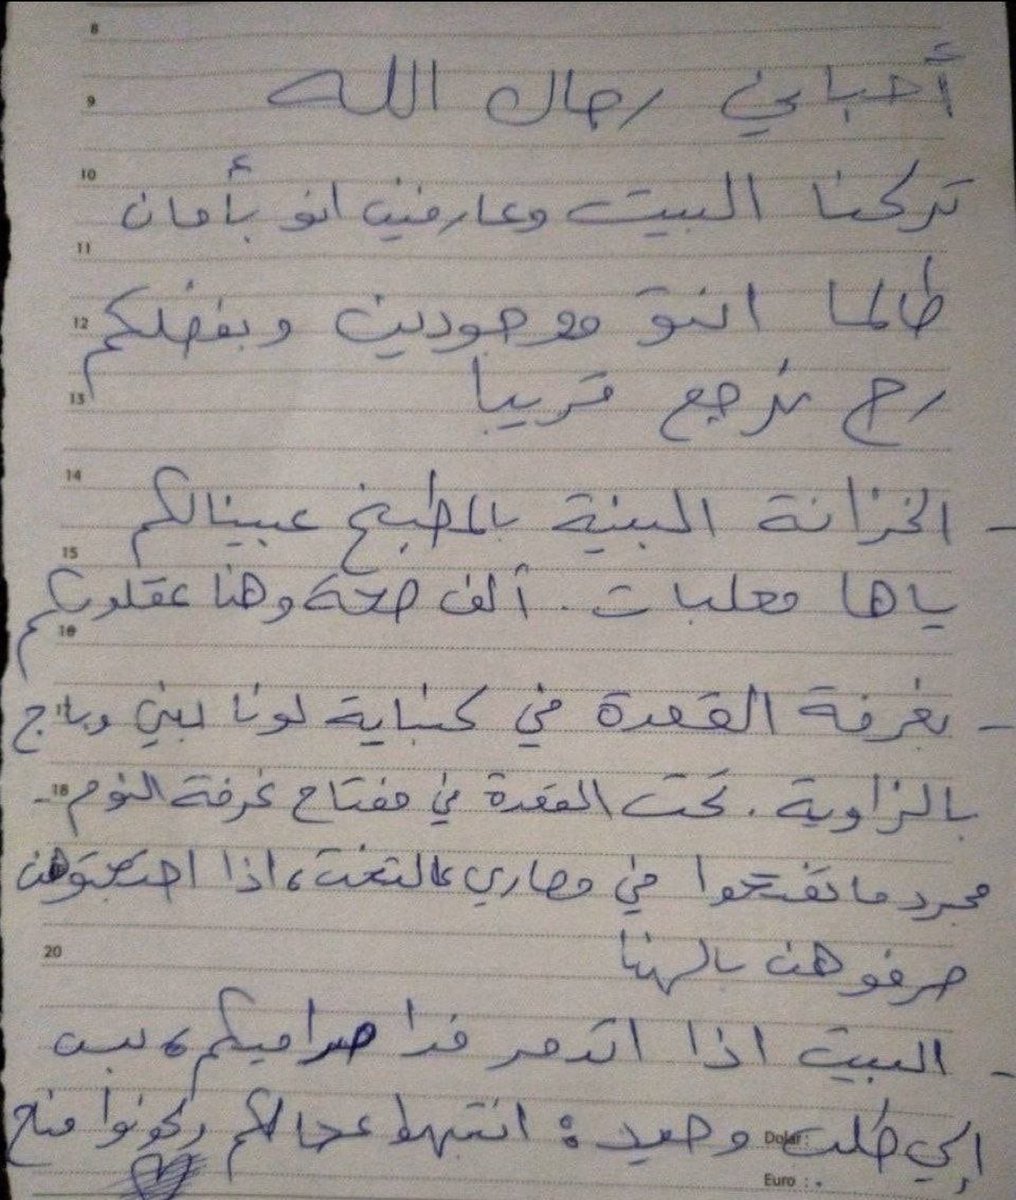 أحبابي رجال الله
تركنا البيت وعارفين انو بأمان
طالما انتو موجودين وبفضلكم
رح نرجع قريبا
- الخزانة البنية بالمطبخ عبينالكم
ياها معلبات. ألف صحة وهنا عقلوبكم
- بغرفة القعدة في كنباية لونا بني وبتاج
بالزاوية. تحت القعدة في مفتاح غرفة النوم -
مجرد ما تفتحوا في مصاري عالتخت، اذا احتجتوهن
صرفوهن بالهنا
- البيت اذا اتدمر فدا صراميكم، بس
إلي طلب وحيد: انتبهوا عحالكم وكونوا مناح
8
9
10
11
12
13
14
15
16
18
20
Dolar :
Euro : .